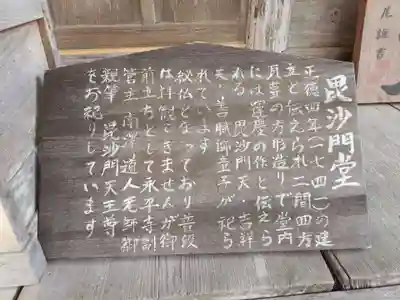 毘沙門堂
正徳四年(一七一四)の建
立と伝えられ二間四方
瓦葺の方形造りで堂内
には運慶の作と伝えら
れる 毘沙門天・吉祥
天・善膩師童子が祀ら
れています
秘仏となっており普段
は拝観できませんが御
前立ちとして永平寺副
管主 南澤道人老師御
親筆 毘沙門天王尊
をお祀りしています